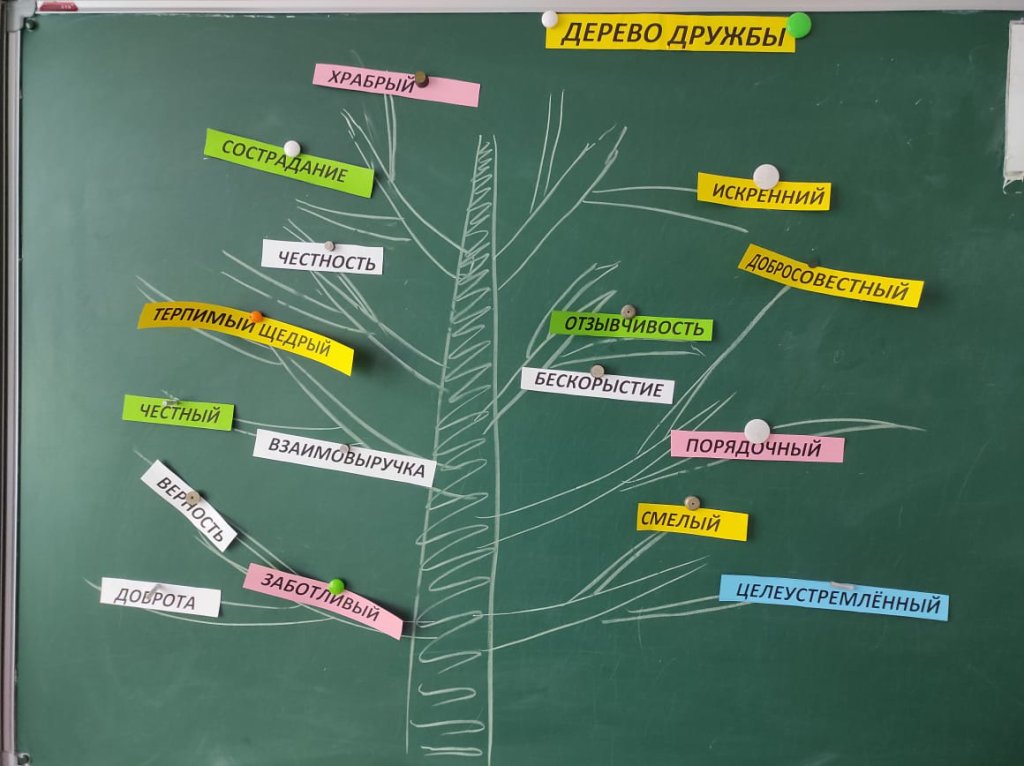 ДЕРЕВО ДРУЖБЫ
ХРАБРЫЙ
СОСТРАДАНИЕ
ИСКРЕННИЙ
ЧЕСТНОСТЬ
ДОБРОСОВЕСТНЫЙ
ТЕРПИМЫЙ ЩЕДРЫЙ
ОТЗЫВЧИВОСТЬ
БЕСКОРЫСТИЕ
ЧЕСТНЫЙ
ВЗАИМОВЫРУЧКА
ПОРЯДОЧНЫЙ
ВЕРНОСТЬ
СМЕЛЫЙ
ДОБРОТА
ЗАБОТЛИВЫЙ
ЦЕЛЕУСТРЕМЛЁННЫЙ